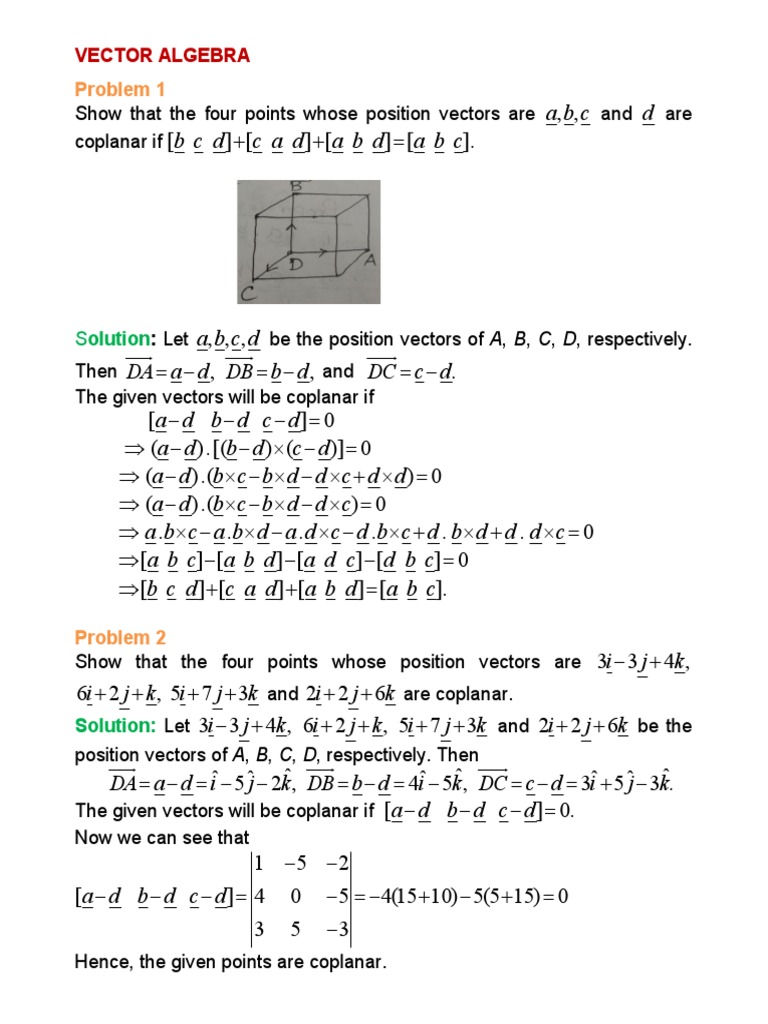 VECTOR ALGEBRA
Problem 1
Show that the four points whose position vectors are a̲,b̲,c̲ and d̲ are
coplanar if [b̲ c̲ d̲]+[c̲ a̲ d̲]+[a̲ b̲ d̲]=[a̲ b̲ c̲].
B
D
A
C
Solution: Let a̲,b̲,c̲,d̲ be the position vectors of A, B, C, D, respectively.
Then DA⃗=a̲−d̲, DB⃗=b̲−d̲, and DC⃗=c̲−d̲.
The given vectors will be coplanar if
[a̲−d̲ b̲−d̲ c̲−d̲]=0
⇒(a̲−d̲).[(b̲−d̲)×(c̲−d̲)]=0
⇒(a̲−d̲).(b̲×c̲−b̲×d̲−d̲×c̲+d̲×d̲)=0
⇒(a̲−d̲).(b̲×c̲−b̲×d̲−d̲×c̲)=0
⇒a̲.b̲×c̲−a̲.b̲×d̲−a̲.d̲×c̲−d̲.b̲×c̲+d̲. b̲×d̲+d̲. d̲×c̲=0
⇒[a̲ b̲ c̲]−[a̲ b̲ d̲]−[a̲ d̲ c̲]−[d̲ b̲ c̲]=0
⇒[b̲ c̲ d̲]+[c̲ a̲ d̲]+[a̲ b̲ d̲]=[a̲ b̲ c̲].
Problem 2
Show that the four points whose position vectors are 3i̲−3j̲+4k̲,
6i̲+2j̲+k̲, 5i̲+7j̲+3k̲ and 2i̲+2j̲+6k̲ are coplanar.
Solution: Let 3i̲−3j̲+4k̲, 6i̲+2j̲+k̲, 5i̲+7j̲+3k̲ and 2i̲+2j̲+6k̲ be the
position vectors of A, B, C, D, respectively. Then
DA⃗=a̲−d̲=î−5ĵ−2k̂, DB⃗=b̲−d̲=4î−5k̂, DC⃗=c̲−d̲=3î+5ĵ−3k̂.
The given vectors will be coplanar if [a̲−d̲ b̲−d̲ c̲−d̲]=0.
Now we can see that
1 −5 −2
[a̲−d̲ b̲−d̲ c̲−d̲]=|4 0 −5|=−4(15+10)−5(5+15)=0
3 5 −3
Hence, the given points are coplanar.